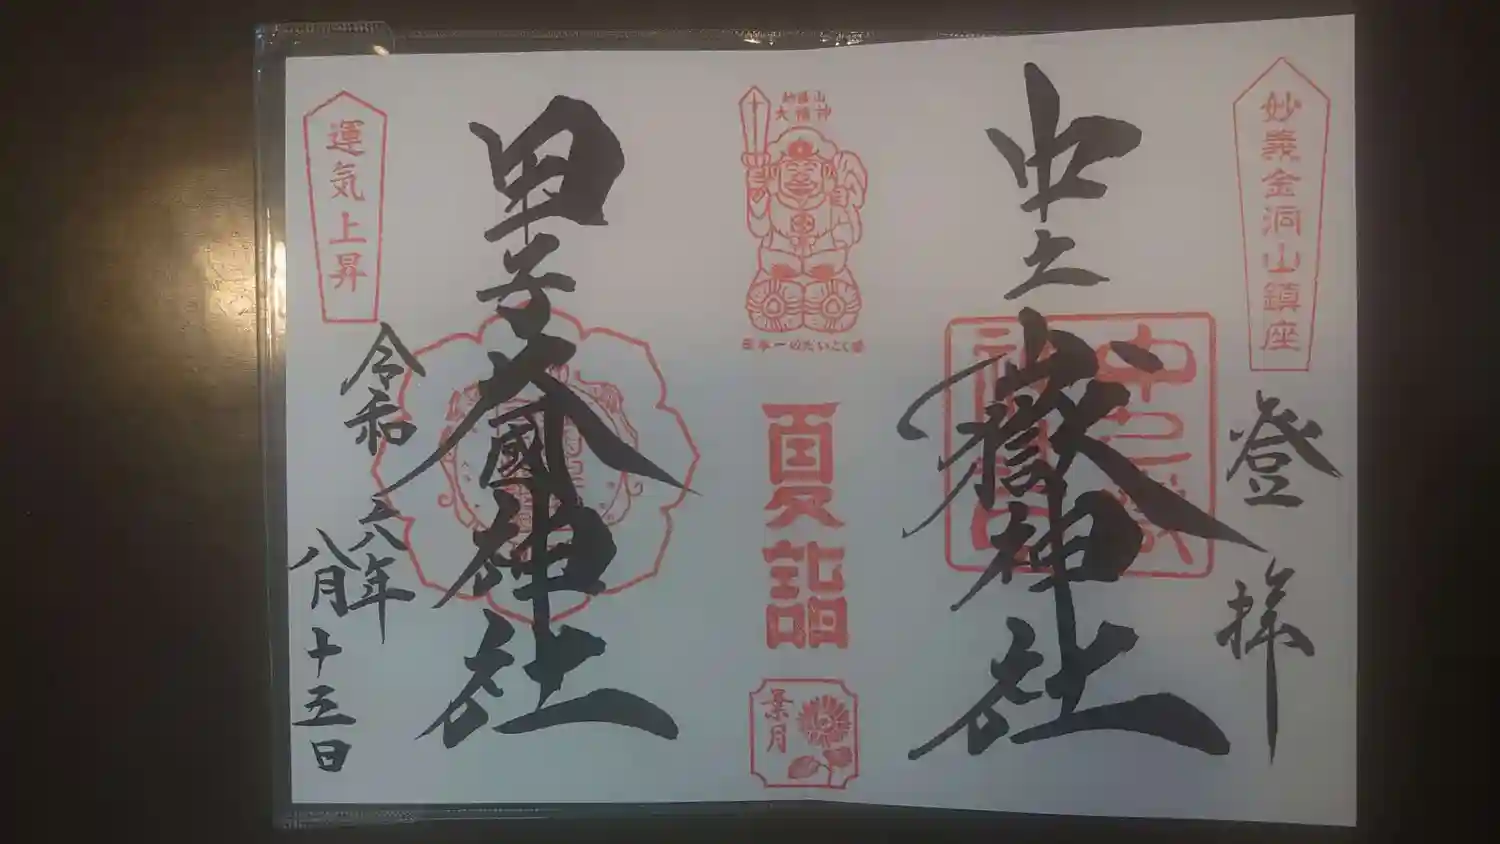 妙義金洞山鎮座
登拝
中之嶽神社
妙義山
大福神
日本一のだいこく様
夏詣
葉月
甲子大國神社
運気上昇
令和六年
八月十五日